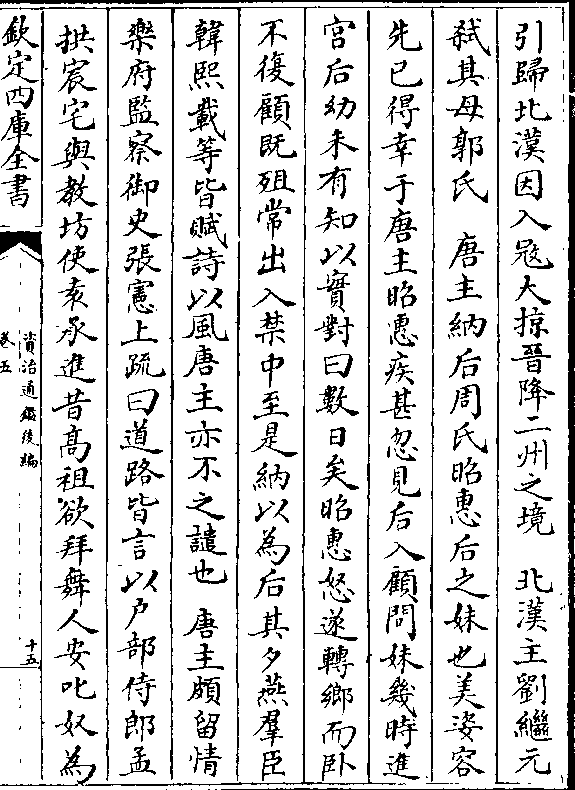 引歸北漢因入冦大掠晉降二州之境　北漢主劉繼元
弑其母郭氏　唐主納后周氏昭惠后之妹也美姿容
先已得幸于唐主昭惠疾甚忽見后入顧問妹幾時進
宫后幼未有知以實對曰數日矣昭惠怒遂轉鄉而卧
不復顧既殂常出入禁中至是納以為后其夕燕羣臣
韓熙載等皆賦詩以風唐主亦不之譴也　唐主頗留情
樂府監察御史張憲上疏曰道路皆言以戶部侍郎孟
拱宸宅與教坊使袁承進昔高祖欲拜舞人安叱奴為
欽定四庫全書
資治通鑑後編
卷五
十五